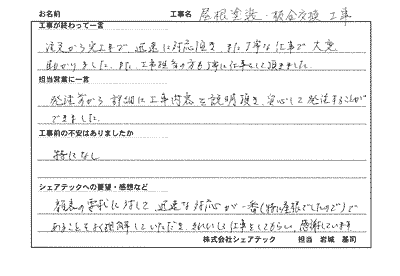 お名前 工事名 屋根塗装・板金交換 工事
工事が終わって一言
注文から完工まで 迅速に対応頂き、また丁寧な仕事で大変
助かりました。また、工事担当の方も丁寧に仕事をして頂きました。
担当営業に一言
発注前から詳細に工事内容を説明頂き、安心して発注することが
できました。
工事前の不安はありましたか
特になし
シェアテックへの要望・感想など
顧客の要求に対して 迅速な対応が一番(特に屋根でしたので)で
あることをよく理解していただき、きれいな仕事をしてもらい、感謝しています
株式会社シェアテック 担当 岩城 基司